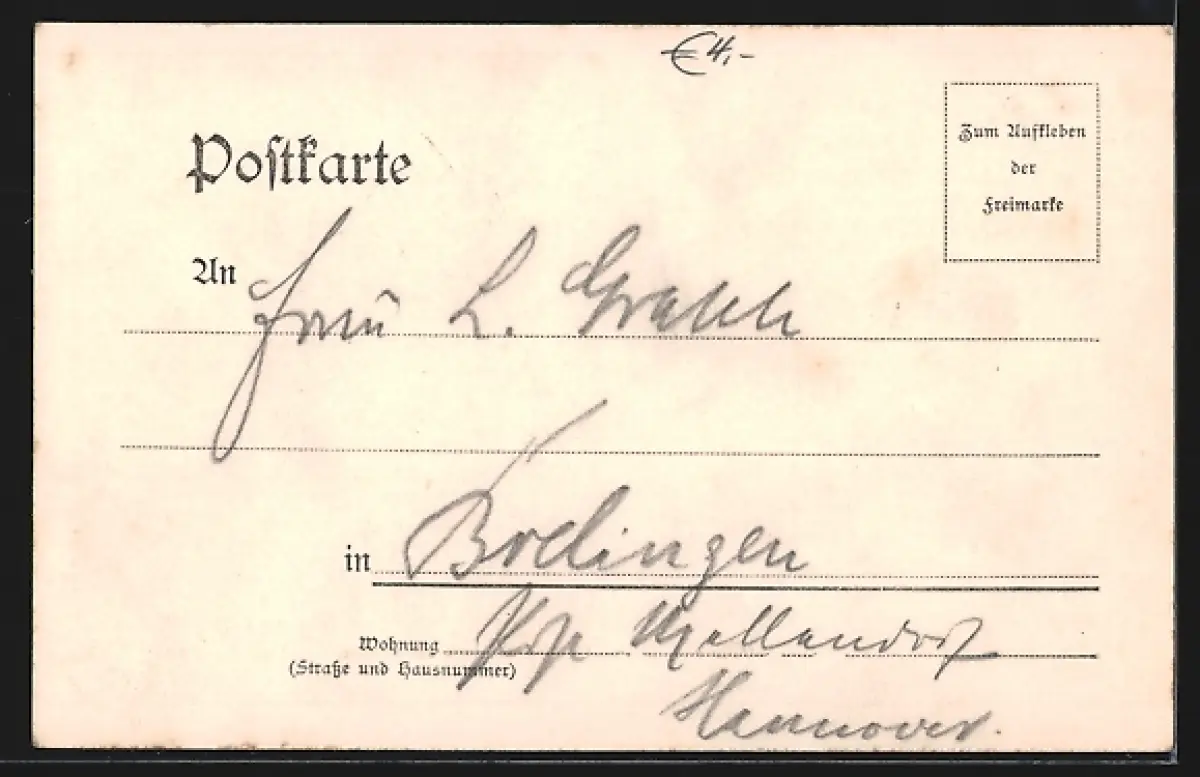 € 4,-
Postkarte
Zum Aufkleben
der
Freimarke
An
Frau L.
in
Wohnung
(Straße und Hausnummer)
Mellendorf
Hannover.